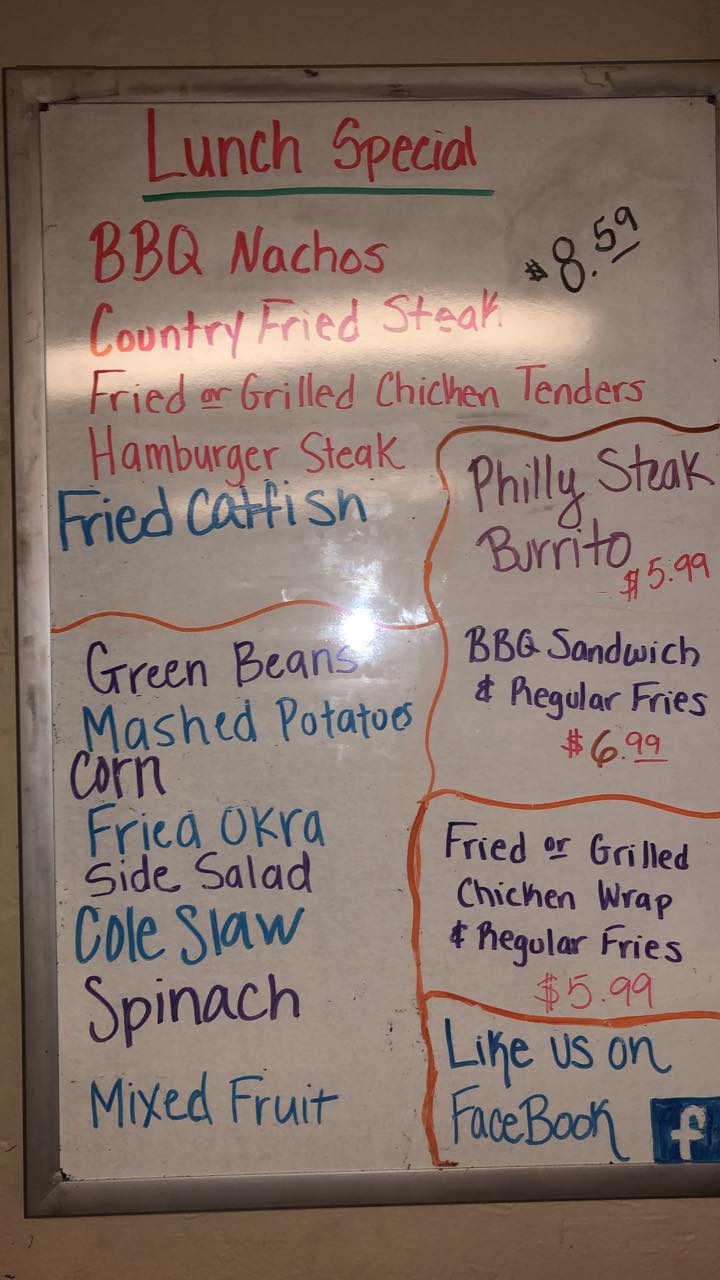 Lunch Special
BBQ Nachos
$8.59
Country Fried Steak
Fried or Grilled Chicken Tenders
Hamburger Steak
Fried Catfish
Philly Steak
Burrito
$5.99
BBQ Sandwich
& Regular Fries
$6.99
Green Beans
Mashed Potatoes
Corn
Fried Okra
Side Salad
Cole Slaw
Spinach
Mixed Fruit
Fried or Grilled
Chicken Wrap
& Regular Fries
$5.99
Like us on
FaceBook f